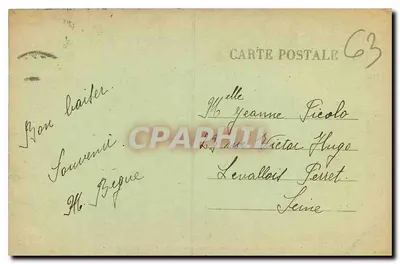 CARTE POSTALE
63
Bon baiser.
Souvenir
M. Begue
Melle Jeanne Picolo
Victor Hugo
Levallois Perret.
Seine
CPARHI